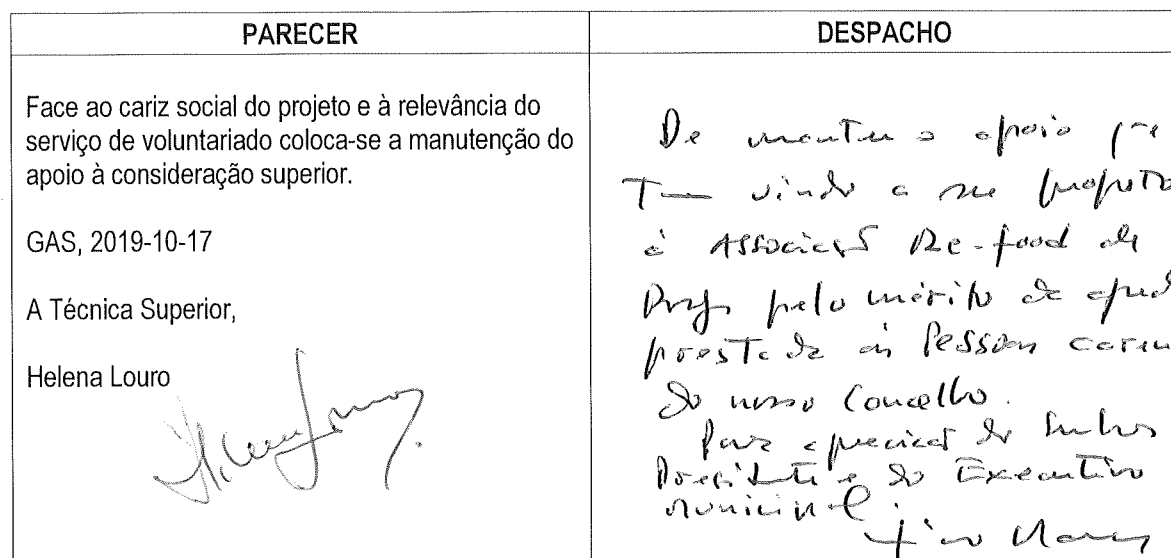 PARECER
DESPACHO
Face ao cariz social do projeto e à relevância do
serviço de voluntariado coloca-se a manutenção do
apoio à consideração superior.
GAS, 2019-10-17
A Técnica Superior,
Helena Louro
De manter o apoio que
Tem vindo a ser proposto
à Associação Re-food de
pelo mérito da
prestada às Pessoas
do nosso Concelho.
Para apreciação do Senhor
Presidente e do Executivo
Municipal.